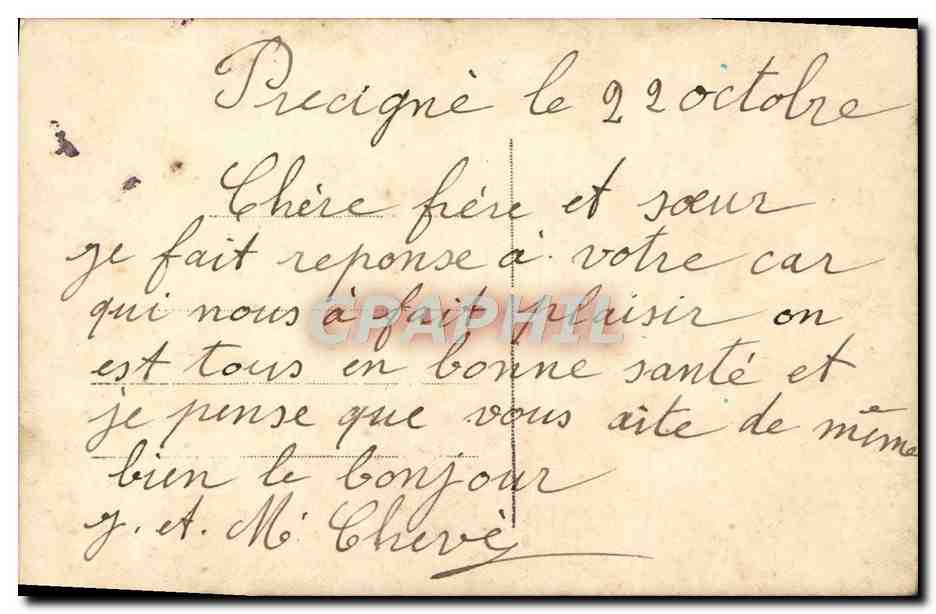 Precigné le 22 octobre
Chère frère et sœur
je fait reponse à votre car
qui nous à fait plaisir on
est tous en bonne santé et
je pense que vous aite de même
bien le bonjour
J. et. M. Chevé
CPAPHIL